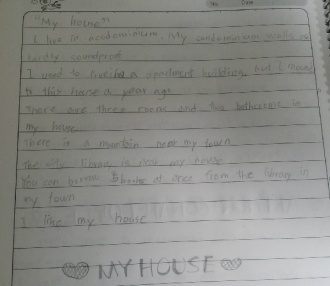 "My house"
I live in condominium. My condominium walls are
hardly soundproof.
I used to lived a apartment building, but I moved
to this house a year ago.
There are three room and two bathrooms in
my house.
There is a mountain near my town.
The city library is near my house.
You can borrow books at once from the library in
my town
I like my house
MY HOUSE